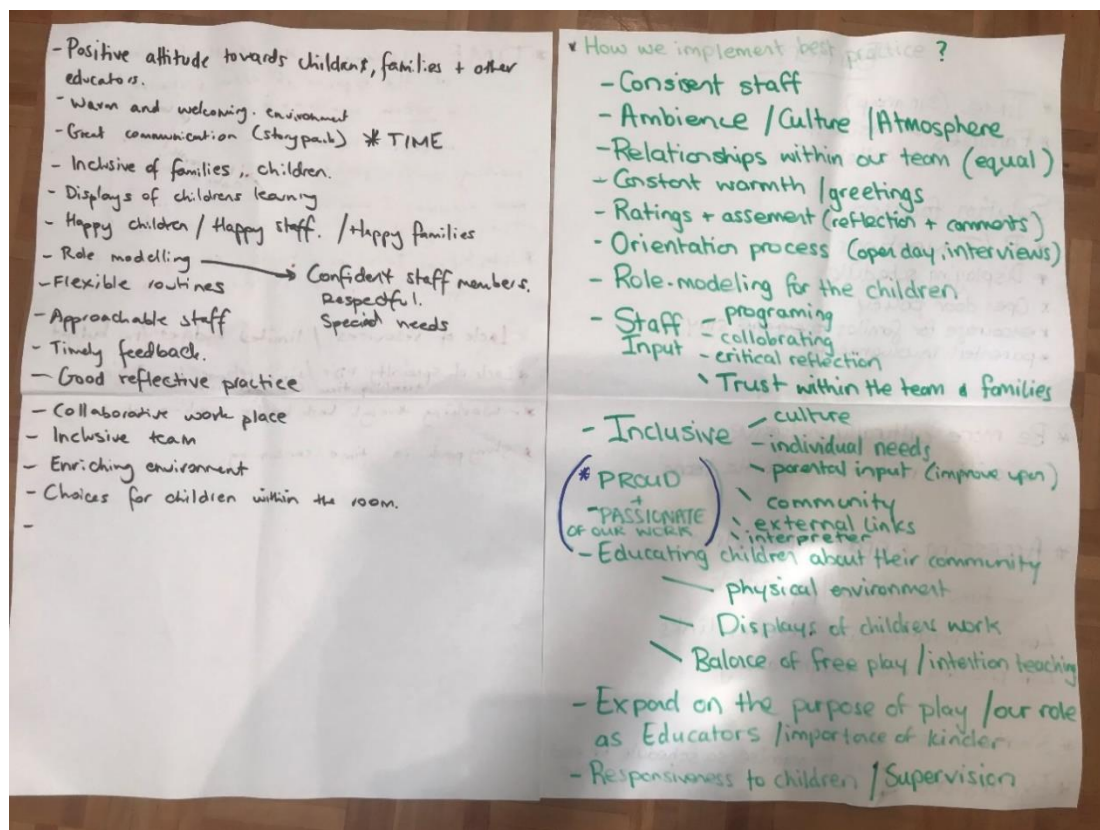 - Positive attitude towards childant, families + other
educators.
- Warm and welcoming. environment
- Great communication (storypark) * TIME
- Inclusive of families, children.
- Displays of childrens learning
- Happy children / Happy staff. / Happy families
- Role modelling → Confident staff members.
Respectful.
Special needs
- Flexible routines
- Approachable staff
- Timely feedback.
- Good reflective practice
- Collaborative work place
- Inclusive team
- Enriching environment
- Choices for children within the room.
-
* How we implement best practice ?
- Consisent staff
- Ambience / Culture / Atmosphere
- Relationships within our team (equal)
- Constant warmth / greetings
- Ratings + assement (reflection + comments)
- Orientation process (open day, interviews)
- Role-modeling for the children
- Staff Input - programing
- collobrating
- critical reflection
- Trust within the team & families
- Inclusive - culture
- individual needs
- parental input (improve upon)
- community
- external links
- interpreter
* PROUD
+
- PASSIONATE
OF OUR WORK
- Educating children about their community
- physical environment
- Displays of childrens work
- Balance of free play / intention teaching
- Expand on the purpose of play / our role
as Educators / importance of kinder
- Responsiveness to children / Supervision